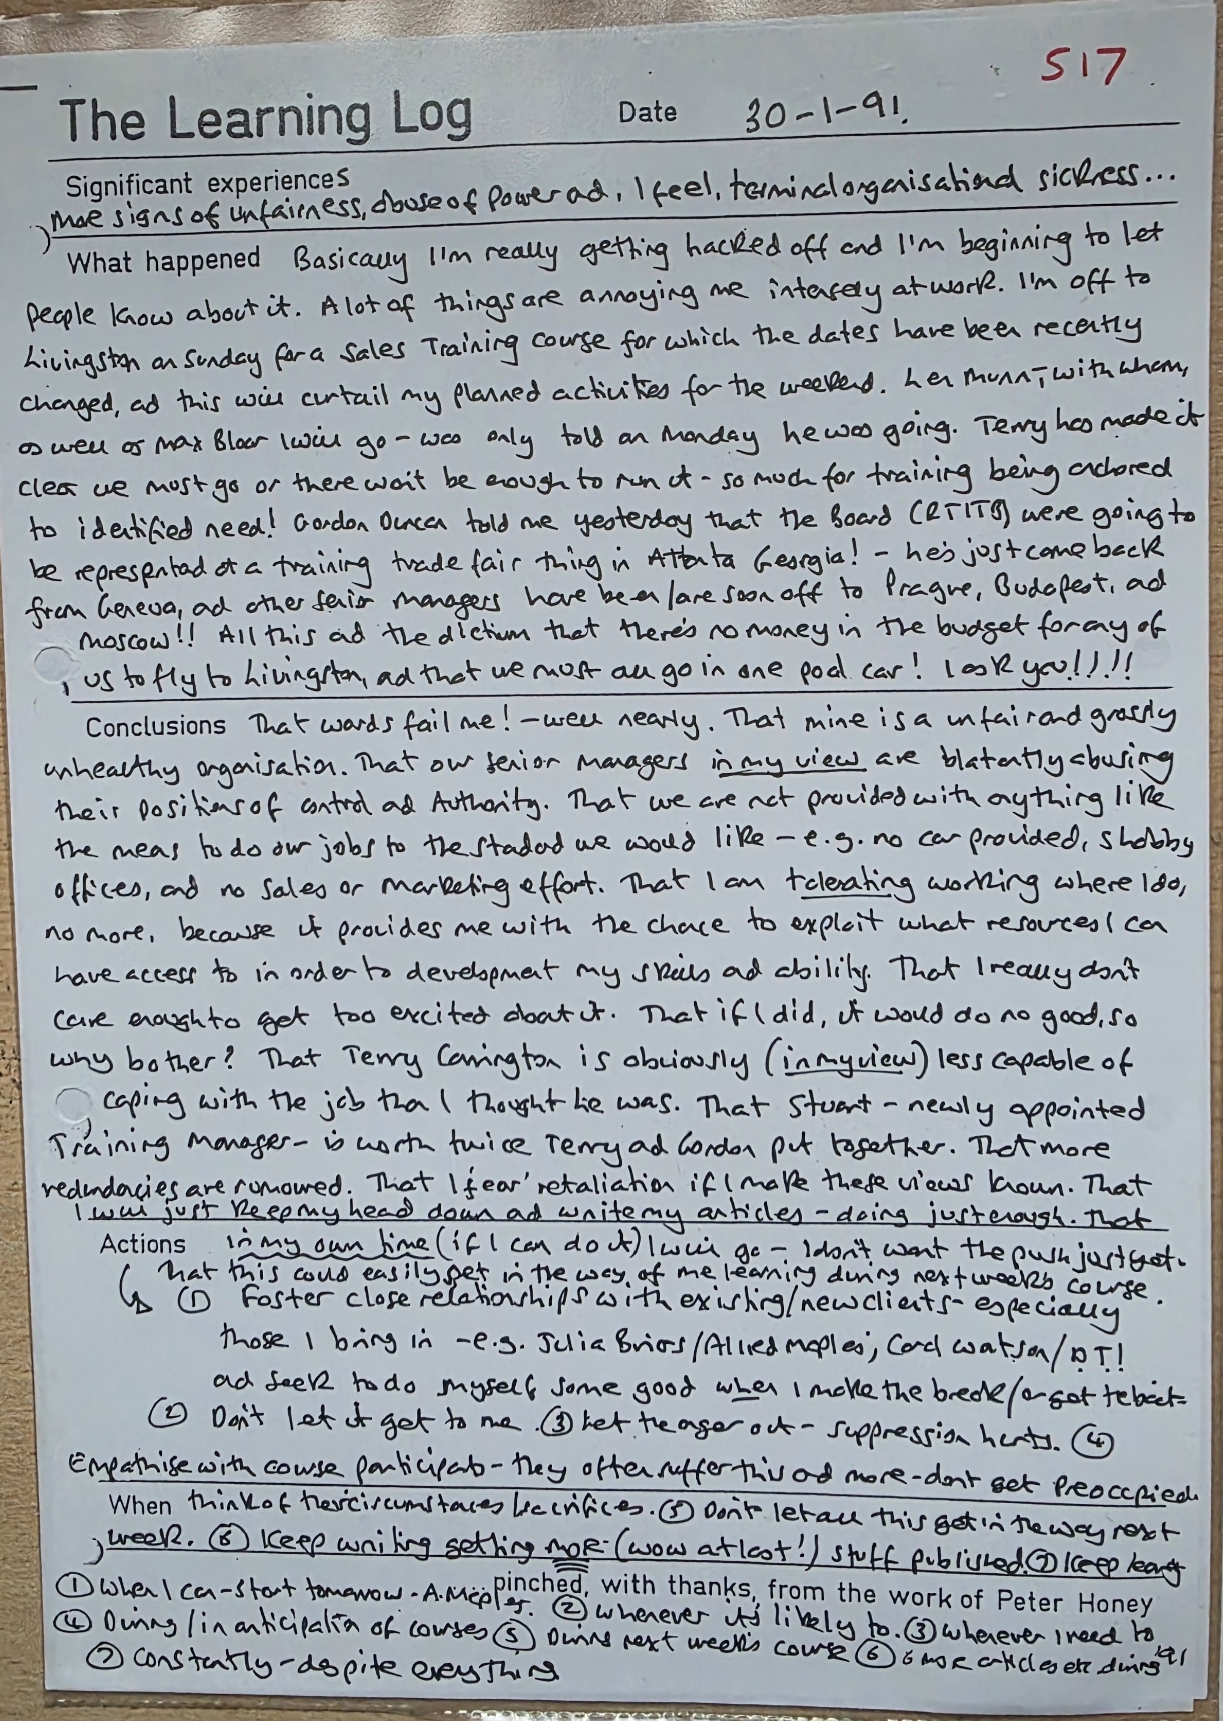 517
The Learning Log Date 30-1-91.
Significant experiences
More signs of unfairness, abuse of power and, I feel, terminal organisational sickness...
What happened Basically I'm really getting hacked off and I'm beginning to let
people know about it. A lot of things are annoying me intensely at work. I'm off to
Livingston on Sunday for a Sales Training course for which the dates have been recently
changed, and this will curtail my planned activities for the weekend. Len Munn, with whom,
as well as Max Bloor I will go - was only told on Monday he was going. Terry has made it
clear we must go or there won't be enough to run it - so much for training being anchored
to identified need! Gordon Duncan told me yesterday that the Board (RTITB) were going to
be represented at a training trade fair thing in Atlanta Georgia! - he's just come back
from Geneva, and other senior managers have been/are soon off to Prague, Budapest, and
Moscow!! All this and the dictum that there's no money in the budget for any of
us to fly to Livingston, and that we must all go in one pool car! I ask you!!!!!
Conclusions That words fail me! - well nearly. That mine is a unfair and grossly
unhealthy organisation. That our senior managers in my view are blatently abusing
their positions of control and Authority. That we are not provided with anything like
the means to do our jobs to the standard we would like - e.g. no car provided, shabby
offices, and no sales or marketing effort. That I am tolerating working where I do,
no more, because it provides me with the chance to exploit what resources I can
have access to in order to development my skills and ability. That I really don't
care enough to get too excited about it. That if I did, it would do no good, so
why bother? That Terry Carrington is obviously (in my view) less capable of
coping with the job than I thought he was. That Stuart - newly appointed
Training Manager - is worth twice Terry and Gordon put together. That more
redundacies are rumoured. That I fear retaliation if I make these views known. That
I will just keep my head down and write my articles - doing just enough. That
Actions in my own time (if I can do it) I will go - I don't want the push just yet.
That this could easily get in the way of me learning during next week's course.
① Foster close relationships with existing/new clients - especially
those I bring in - e.g. Julia Briars/Allied Maples; Carol Watson/DT!
and seek to do myself some good when I make the break/or get the boot
② Don't let it get to me. ③ Let the anger out - suppression hurts. ④
Empathise with course participants - they often suffer this and more - don't get preoccupied
When think of their circumstances/sacrifices. ⑤ Don't let all this get in the way next
week. ⑥ Keep writing getting more (wow at last!) stuff published. ⑦ Keep learng
pinched, with thanks, from the work of Peter Honey
① When I can - start tomorrow - A. Maples. ② Whenever it's likely to. ③ Whenever I need to
④ During/in anticipation of courses ⑤ During next week's course ⑥ 6 more articles etc. during '91
⑦ Constantly - despite everything